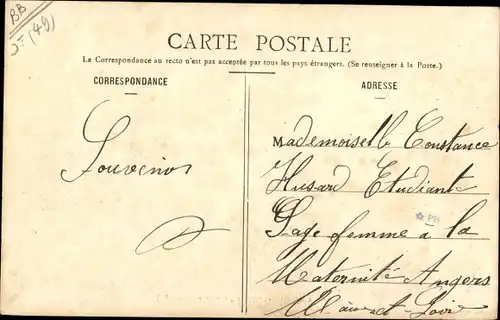 BB
(49)
CARTE POSTALE
La Correspondance au recto n'est pas acceptée par tous les pays étrangers. (Se renseigner à la Poste.)
CORRESPONDANCE
ADRESSE
Souvenir
Mademoiselle Constance
Husard Etudiant
Sage femme à la
Maternité Angers
Maine et Loire